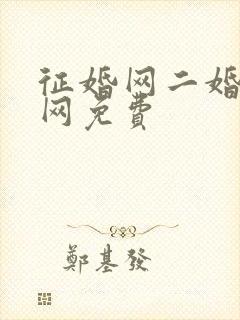 征婚网二婚
网免费
鄭基發